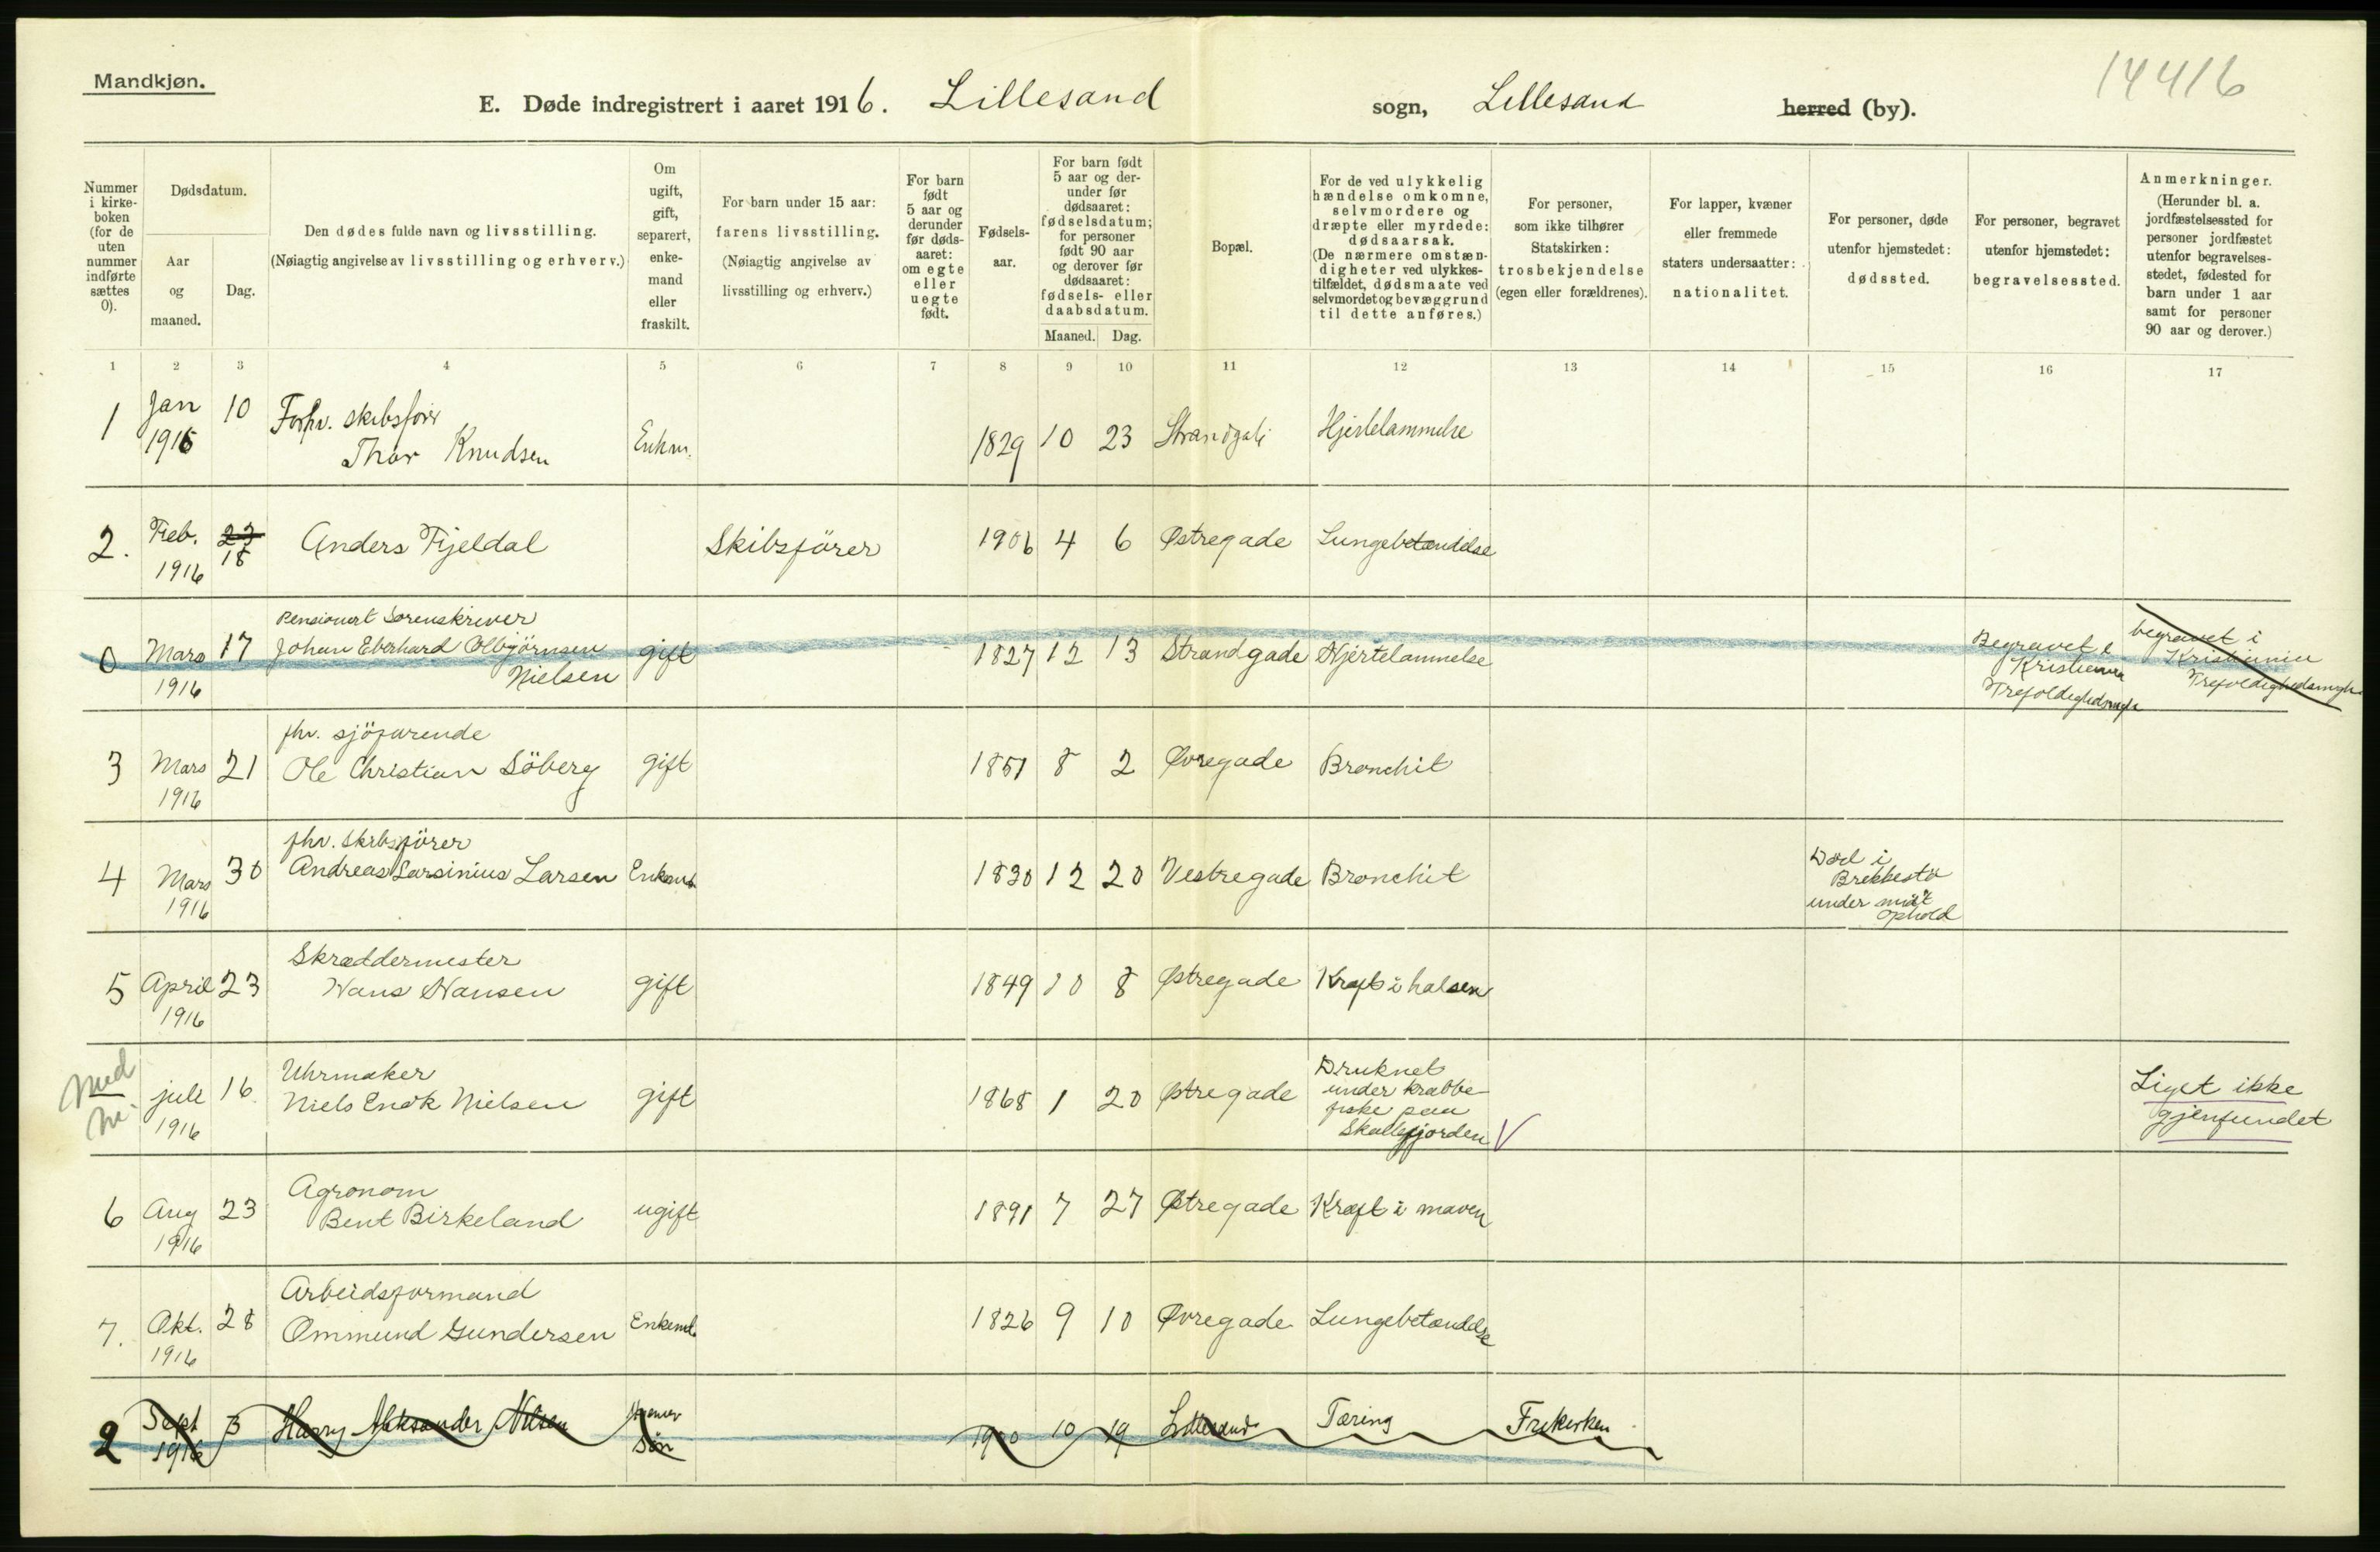 Mandkjøn.
E. Døde indregistrert i aaret 1916. Lillesand sogn, Lillesand herred (by).
14416
Nummer i kirke-boken (for de uten nummer indførte sættes 0).
Dødsdatum.
Aar og maaned.
Dag.
Den dødes fulde navn og livsstilling.
(Nøiagtig angivelse av livsstilling og erhverv.)
Om ugift, gift, separert, enke-mand eller fraskilt.
For barn under 15 aar: farens livsstilling.
(Nøiagtig angivelse av livsstilling og erhverv.)
For barn født 5 aar og derunder før døds-aaret: om egte eller uegte født.
Fødsels-aar.
For barn født 5 aar og der-under før dødsaaret: fødselsdatum; for personer født 90 aar og derover før dødsaaret: fødsels- eller daabsdatum.
Maaned. Dag.
Bopæl.
For de ved ulykkelig hændelse omkomne, selvmordere og dræpte eller myrdede: dødsaarsak.
(De nærmere omstæn-digheter ved ulykkes-tilfældet, dødsmaate ved selvmordet og bevæggrund til dette anføres.)
For personer, som ikke tilhører Statskirken: trosbekjendelse (egen eller forældrenes).
For lapper, kvæner eller fremmede staters undersaatter: nationalitet.
For personer, døde utenfor hjemstedet: dødssted.
For personer, begravet utenfor hjemstedet: begravelsessted.
Anmerkninger.
(Herunder bl. a. jordfæstelsessted for personer jordfæstet utenfor begravelses-stedet, fødested for barn under 1 aar samt for personer 90 aar og derover.)
1 2 3 4 5 6 7 8 9 10 11 12 13 14 15 16 17
1 Jan 1916 10 Forhv. skibsfører
Thor Knudsen Enkm. 1829 10 23 Strandgate Hjertelammelse
2. Feb. 1916 23 18 Anders Fjeldal Skibsförer 1906 4 6 Østregade Lungebetændelse
0 Mars 1916 17 Pensionert Sorenskriver
Johan Eberhard Olbjörnsen
Nielsen gift 1827 12 13 Strandgade Hjertelammelse
Begravet i
Kristiania
Trefoldighedsmgh
begravet i
Kristiania
Trefoldighedsmgh
3 Mars 1916 21 fhv. sjöfarende
Ole Christian Söberg gift 1851 8 2 Øvregade Bronchit
4 Mars 1916 30 fhv. Skibsförer
Andreas Larsinius Larsen Enkemd. 1830 12 20 Vestregade Bronchit
Död i
Brekkestö
under midt
ophold
5 April 1916 23 Skræddermester
Hans Hansen gift 1849 10 8 Østregade Kræft i halsen
Med
m.
juli 1916 16. Uhrmaker
Niels Enok Nielsen gift 1868 1 20 Østregade Druknet
under krabbe-
fiske paa
Skallefjorden V
Liget ikke
gjenfundet
6 Aug 1916 23 Agronom
Bent Birkeland ugift 1891 7 27 Østregade Kræft i maven
7. Okt. 1916 28 Arbeidsformand
Ommund Gundersen Enkemd. 1826 9 10 Øvregade Lungebetændelse
2 Sept 1916 3 Harry Aleksander Nilsen
Søn 1900 10 19 Lillesand Tæring Frikirken